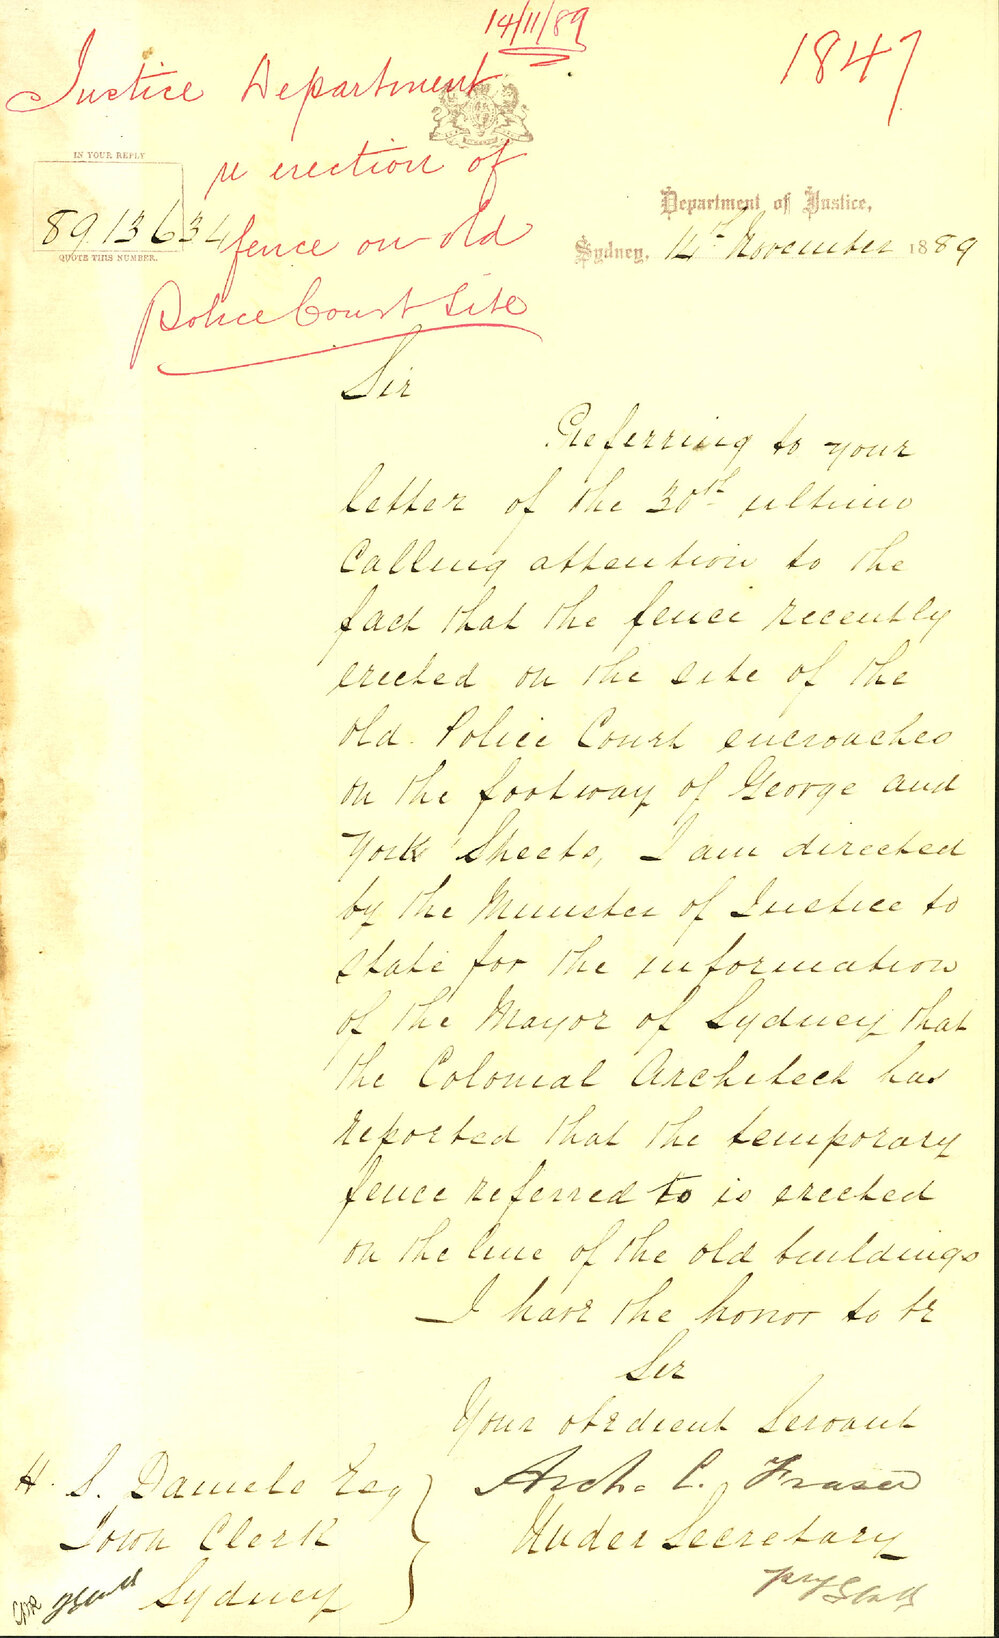 14/11/89
1847
Justice Department
re erection of
fence on old
Police Court Site
IN YOUR REPLY
89.13634
QUOTE THIS NUMBER.
Department of Justice,
Sydney, 14th November 1889
Sir
Referring to your
letter of the 30th ultimo
Calling attention to the
fact that the fence recently
erected on the site of the
old Police Court encroaches
on the footway of George and
York Streets, I am directed
by the Minister of Justice to
state for the information
of the Mayor of Sydney that
the Colonial Architect has
reported that the temporary
fence referred to is erected
on the line of the old buildings
I have the honor to be
Sir
Your obedient Servant
Arch. C. Fraser
Under Secretary
H. S. Daniels Esq
Town Clerk
Sydney